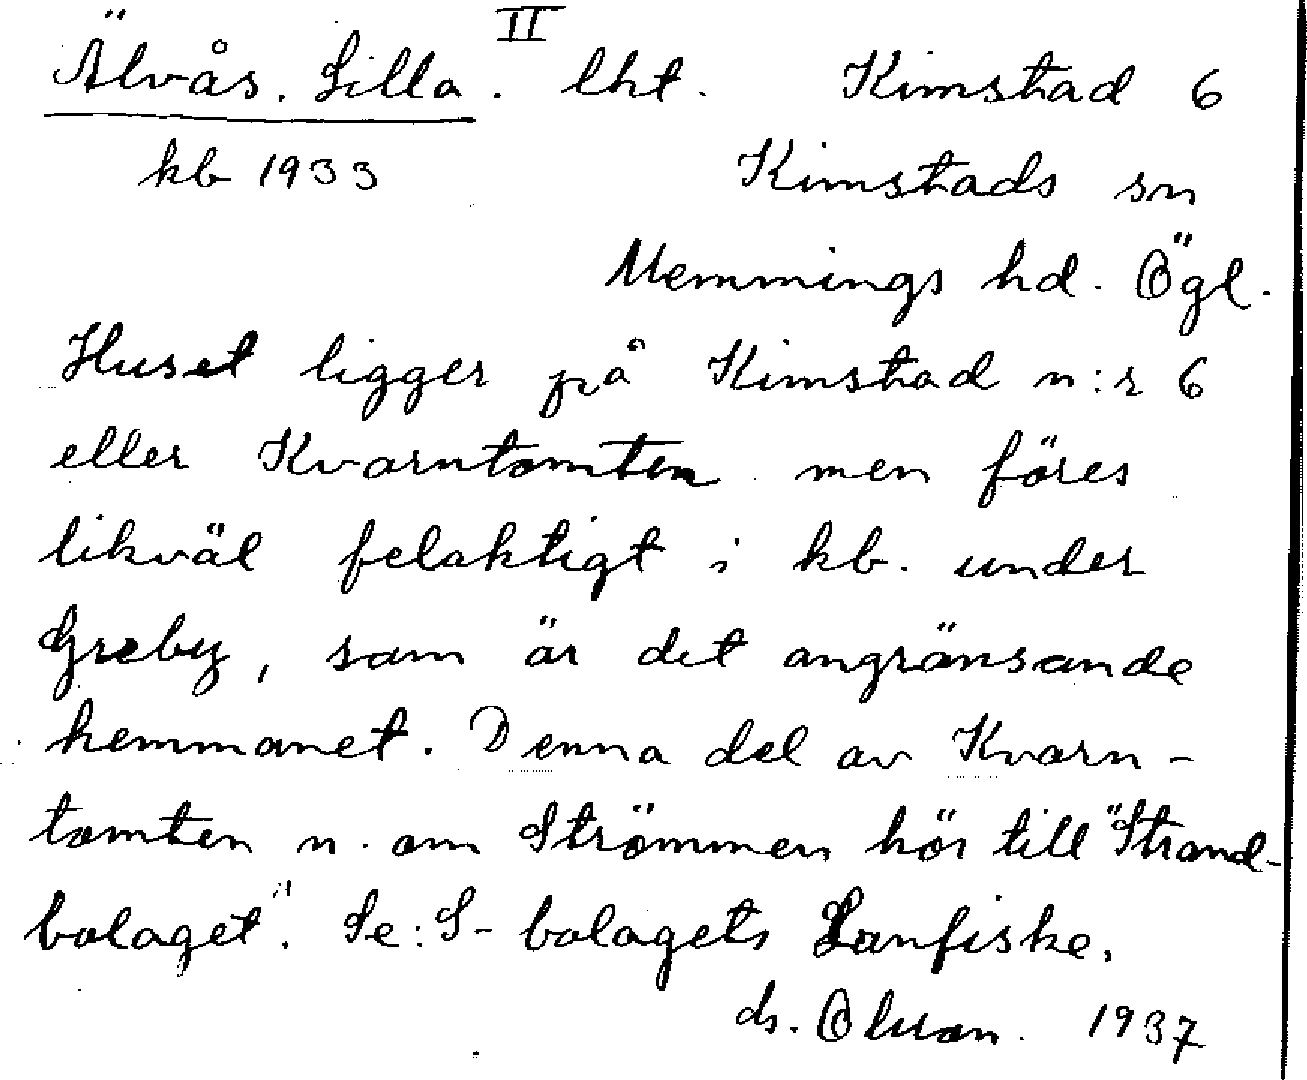 II
Älvås. Lilla. lht. Kimstad 6
kb 1933 Kimstads sn
Memmings hd. Ögl.
Huset ligger på Kimstad n:r 6
eller Kvarntomten men föres
likväl felaktigt i kb. under
Greby, som är det angränsande
hemmanet. Denna del av Kvarn-
tomten n. om Strömmen hör till "Strand-
bolaget". Se: S-bolagets Lanfiske.
ds. 1937